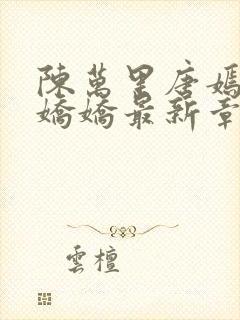 陳萬里唐嫣
嬌嬌最新章
雲檀